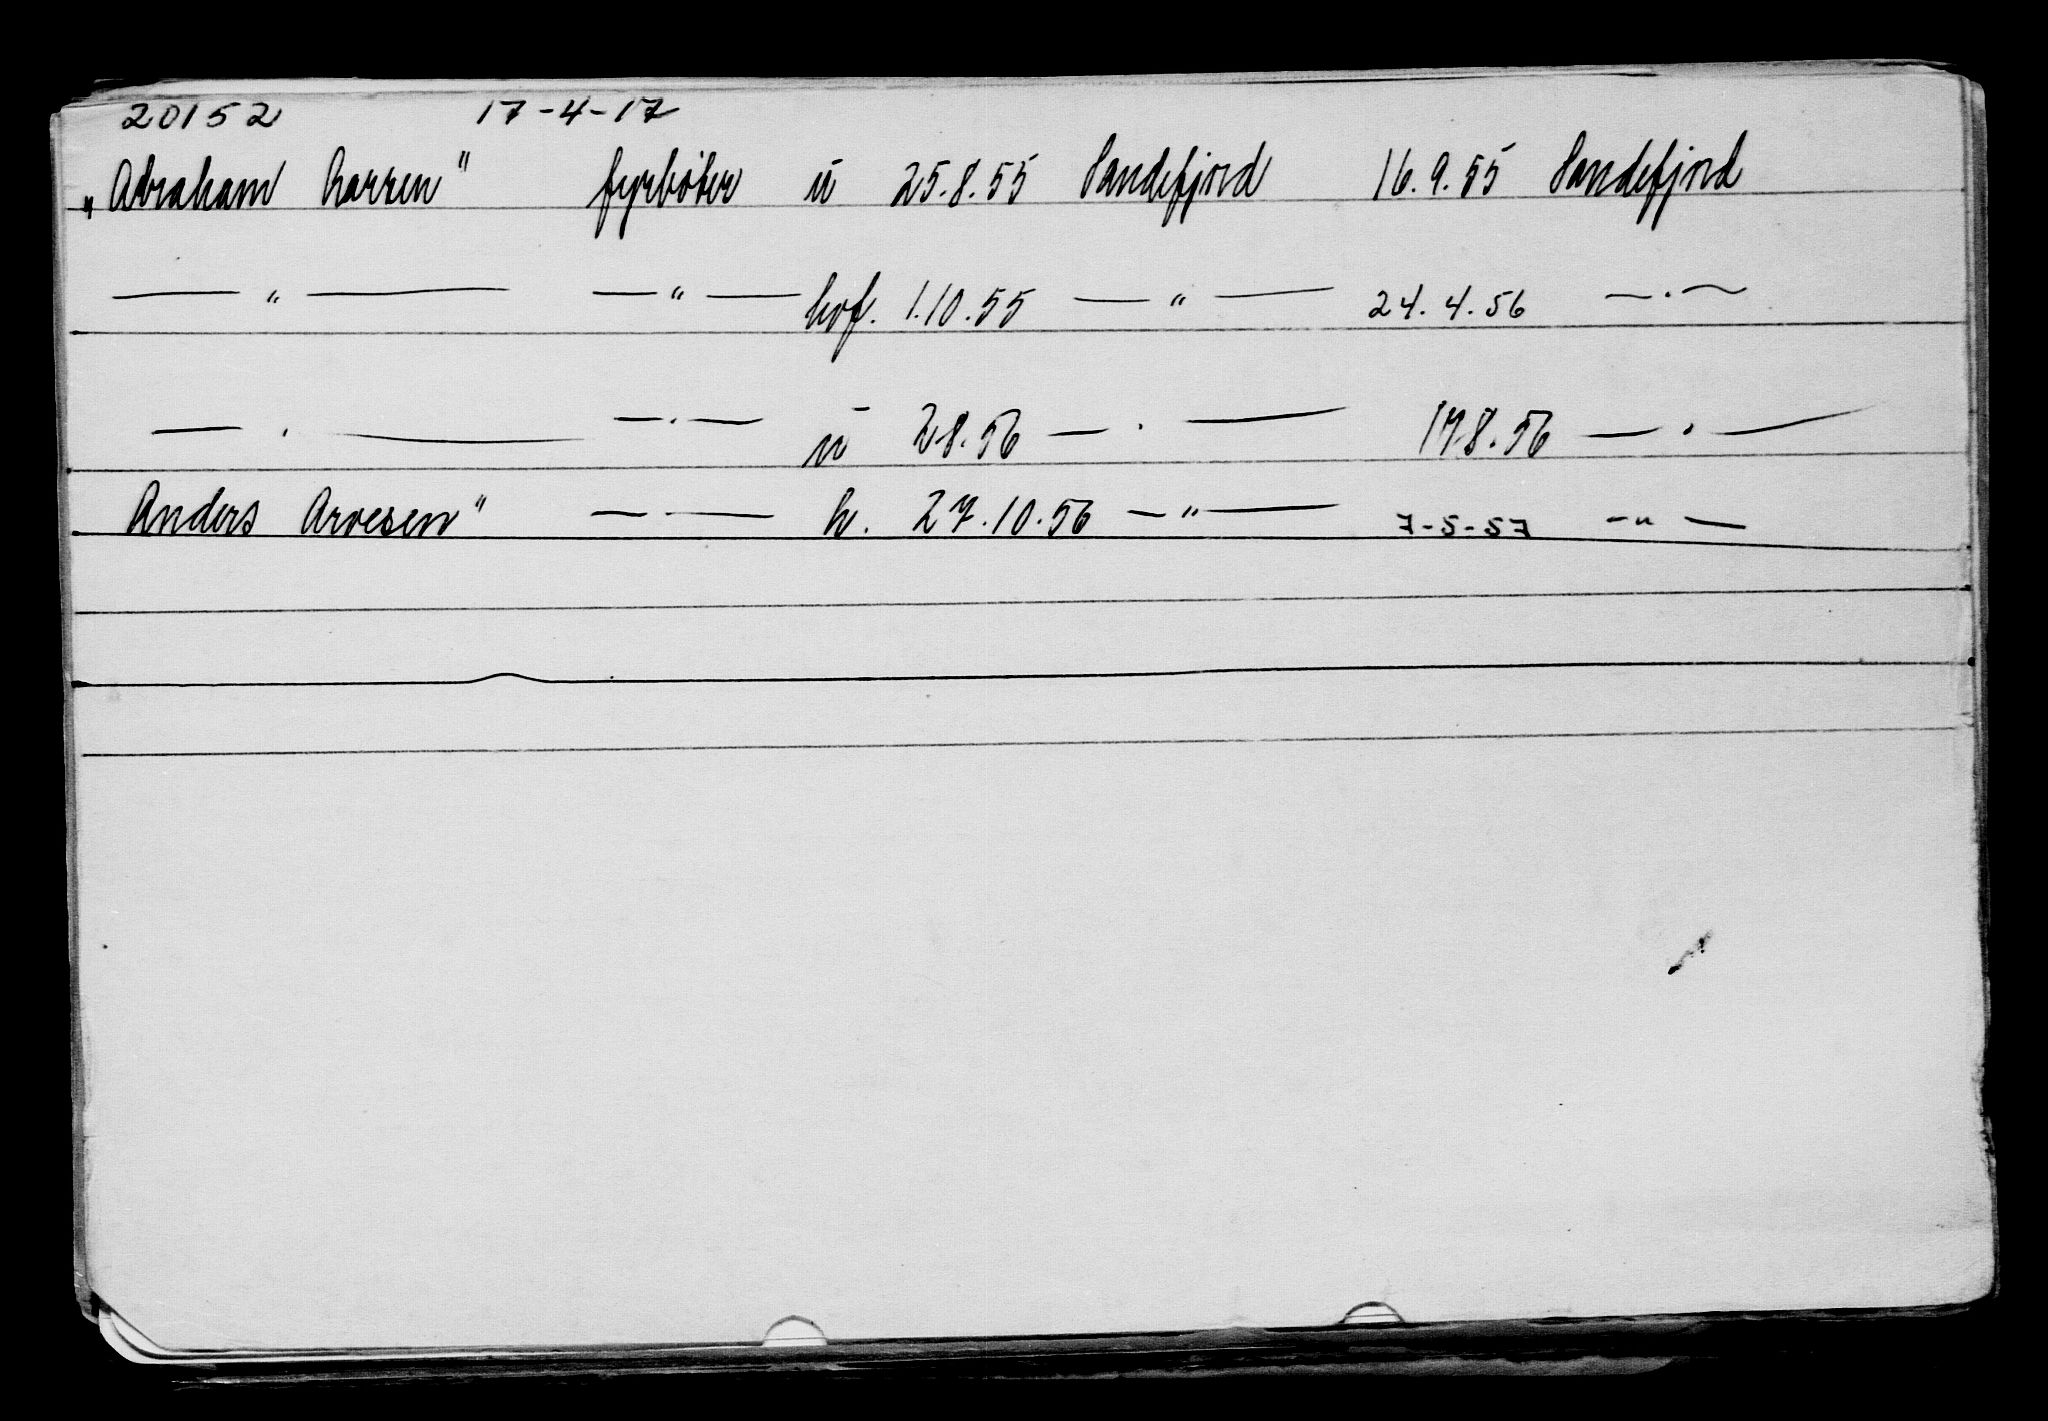 20152 17-4-17
„Abraham Larsen" fyrbøter u 25.8.55 Sandefjord 16.9.55 Sandefjord
— " — — " — hvf. 1.10.55 — " — 24.4.56 — " —
— " — — " — u 2.8.56 — " — 17.8.56 — " —
Anders Arvesen" — " — h. 27.10.56 — " — 7-5-57 — " —